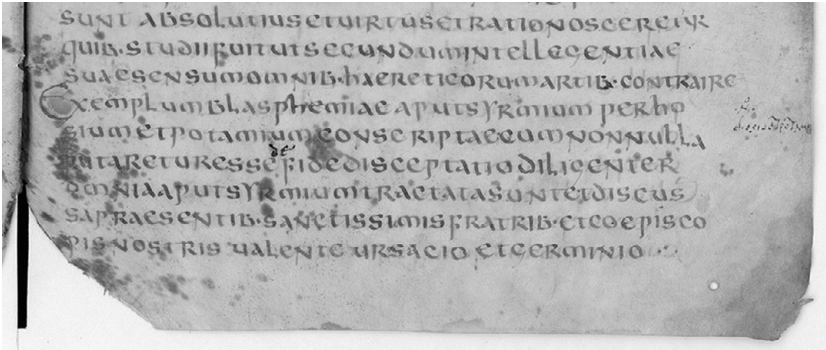 SUNT ABSOLUTIUSETUIRTUSETRATIONOSCERETUR
QUIB·STUDIIFUITUTSECUNDUMINTELLEGENTIAE
SUAESENSUMOMNIB·HAERETICORUMARTIB·CONTRAIRE
EXEMPLUMBLASPHEMIAE APUTSYRMIUM PERHO
SIUMETPOTAMIUMCONSCRIPTAECUMNONNULLA
PUTARETURESSE de FIDEDISCEPTATIODILIGENTER
OMNIAAPUTSYRMIUMTRACTATASUNTETDISCUS
SAPRAESENTIB·SANCTISSIMISFRATRIB·ETCOEPISCO
PIS NOSTRIS UALENTE URSACIO ETGERMINIO